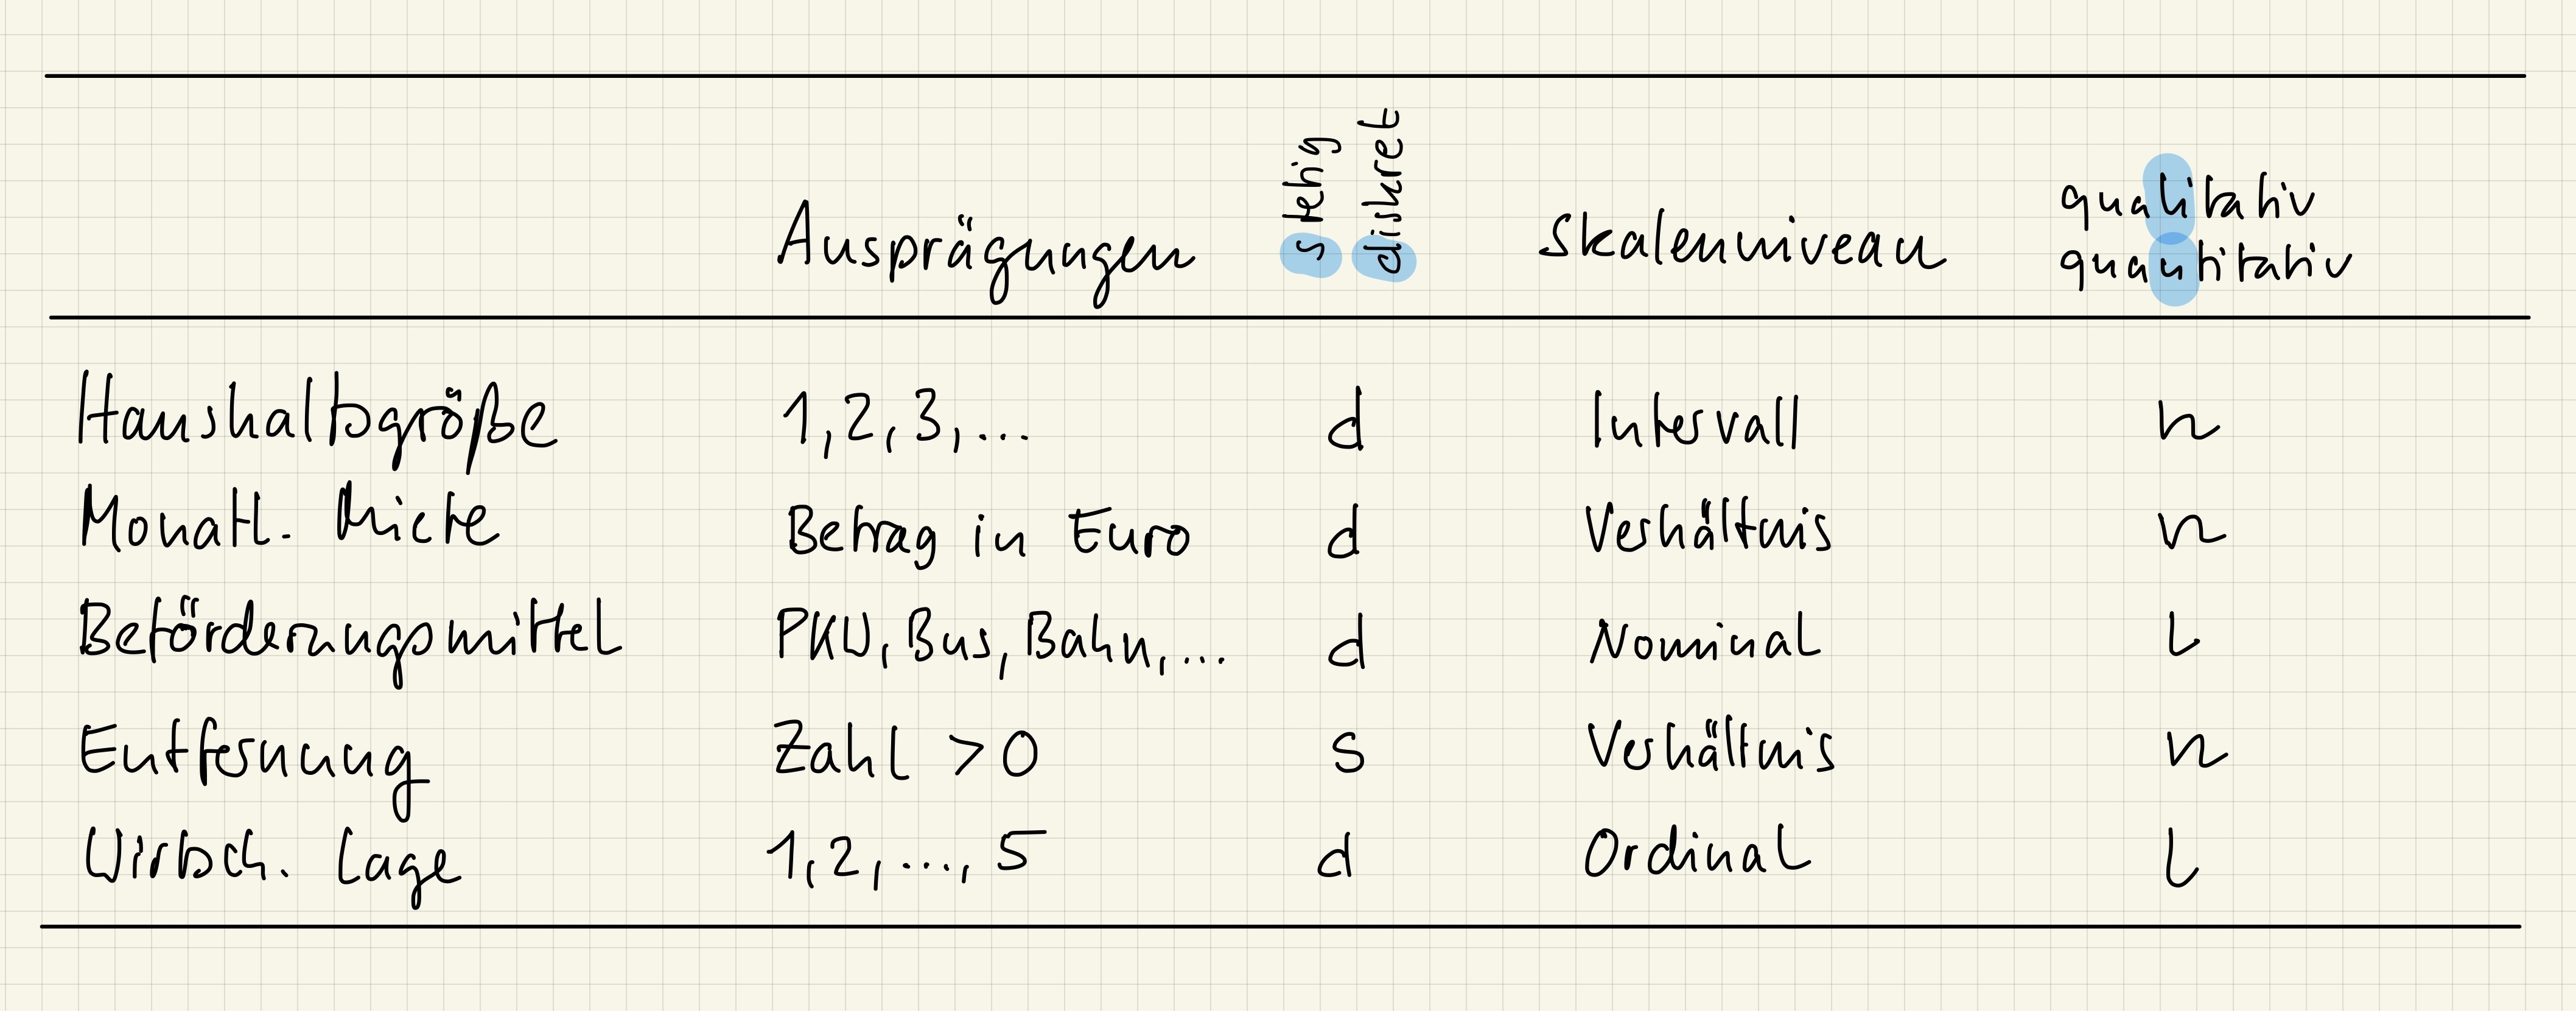 Ausprägungen stetig diskret Skalenniveau qualitativ
quantitativ
Haushaltsgröße 1, 2, 3, ... d Intervall n
Monatl. Miete Betrag in Euro d Verhältnis n
Beförderungsmittel PKW, Bus, Bahn, ... d Nominal l
Entfernung Zahl > 0 s Verhältnis n
Wirtsch. Lage 1, 2, ..., 5 d Ordinal l